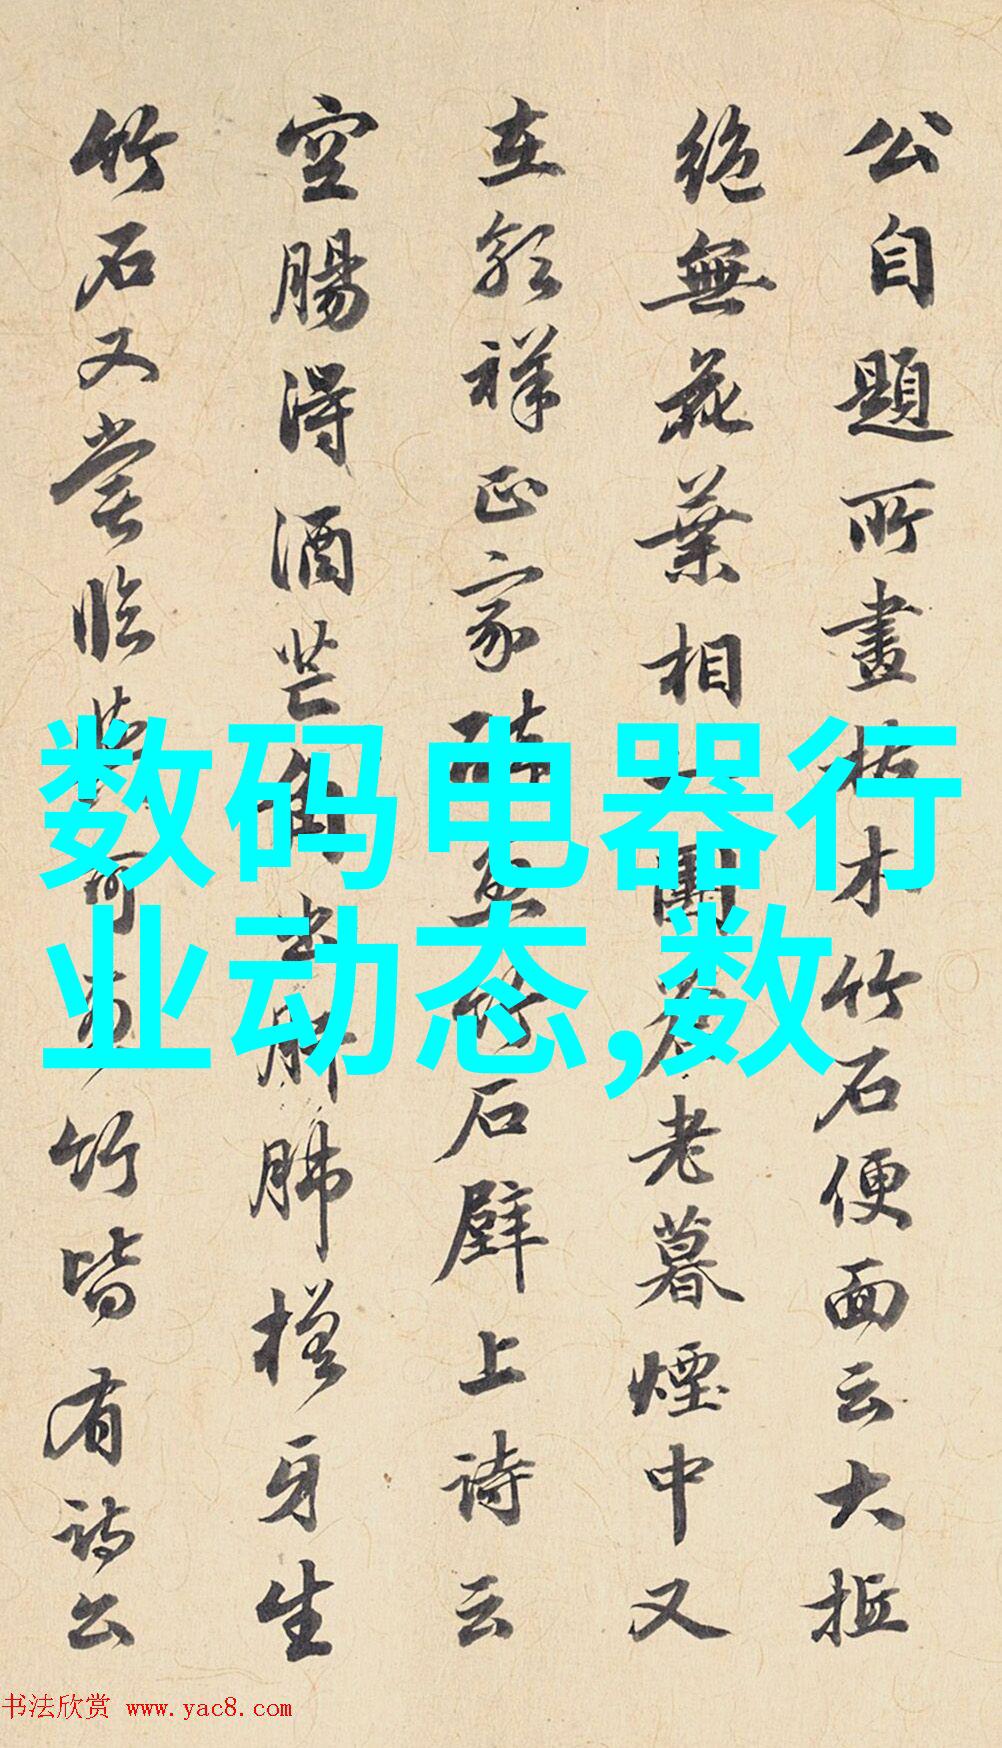 公自題所畫枯木竹石便面云大抵
絶無花葉相一團蒼老暮煙中又
在郭祥正家醉畫竹石壁上詩云
空腸得酒芒角出肝肺槎牙生
竹石又嘗臨黄竹皆有詩公
数码电器行
业动态,数
书法欣赏 www.yac8.com